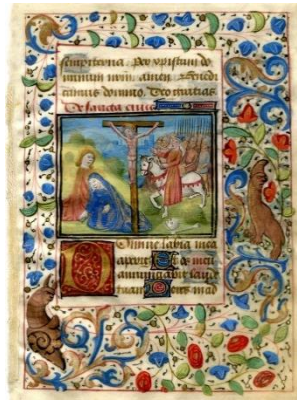 sempiterna. Per xpistum do
minum nrm. amen. Benedi
camus domino. Deo gratias
De sancta cruce
Domine labia mea
aperies Et os meū
annunciabit laudē
tuam Deus in ad